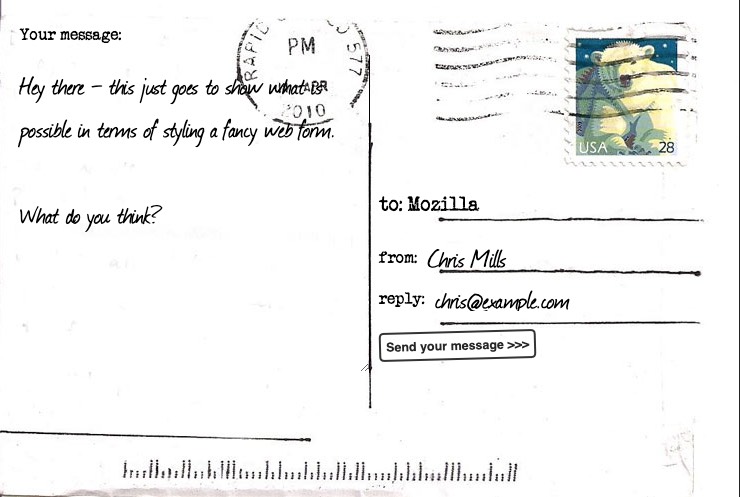 Your message:
Hey there – this just goes to show what is
possible in terms of styling a fancy web form.
What do you think?
RAPID 577
PM
APR
2010
USA 28
to: Mozilla
from: Chris Mills
reply: chris@example.com
Send your message >>>